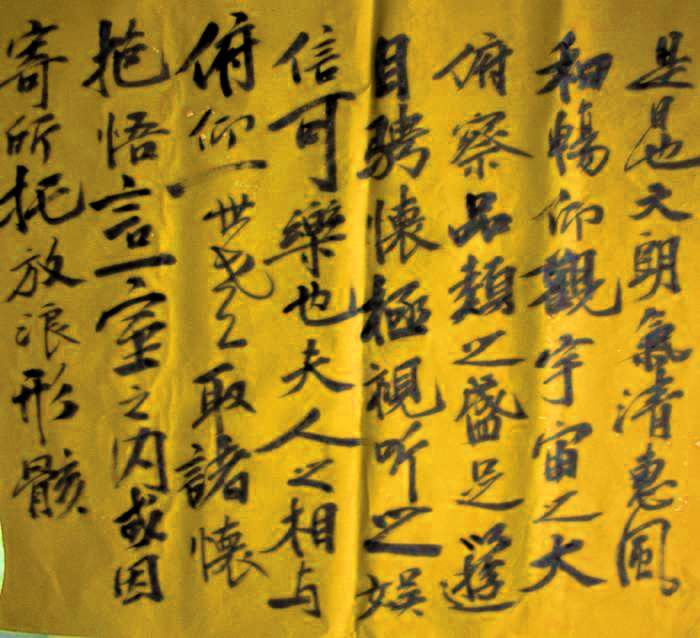 是日也天朗氣清惠風
和暢仰觀宇宙之大
俯察品類之盛足遊
目騁懷極視听之娛
信可樂也夫人之相与
俯仰一世或取諸懷
抱悟言一室之内或因
寄所托放浪形骸